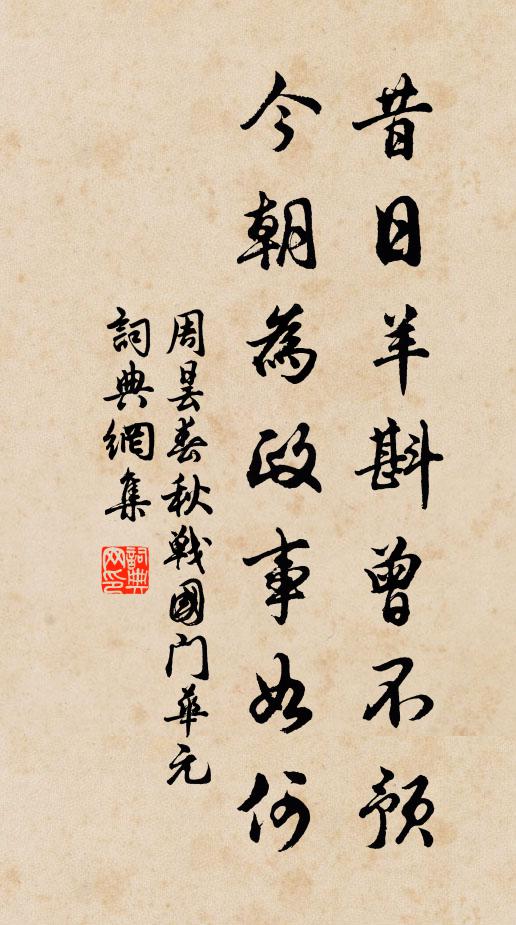 昔日羊斟曾不預
今朝為政事如何
周昙春秋戰國門華元
詞典網集
詞典网印